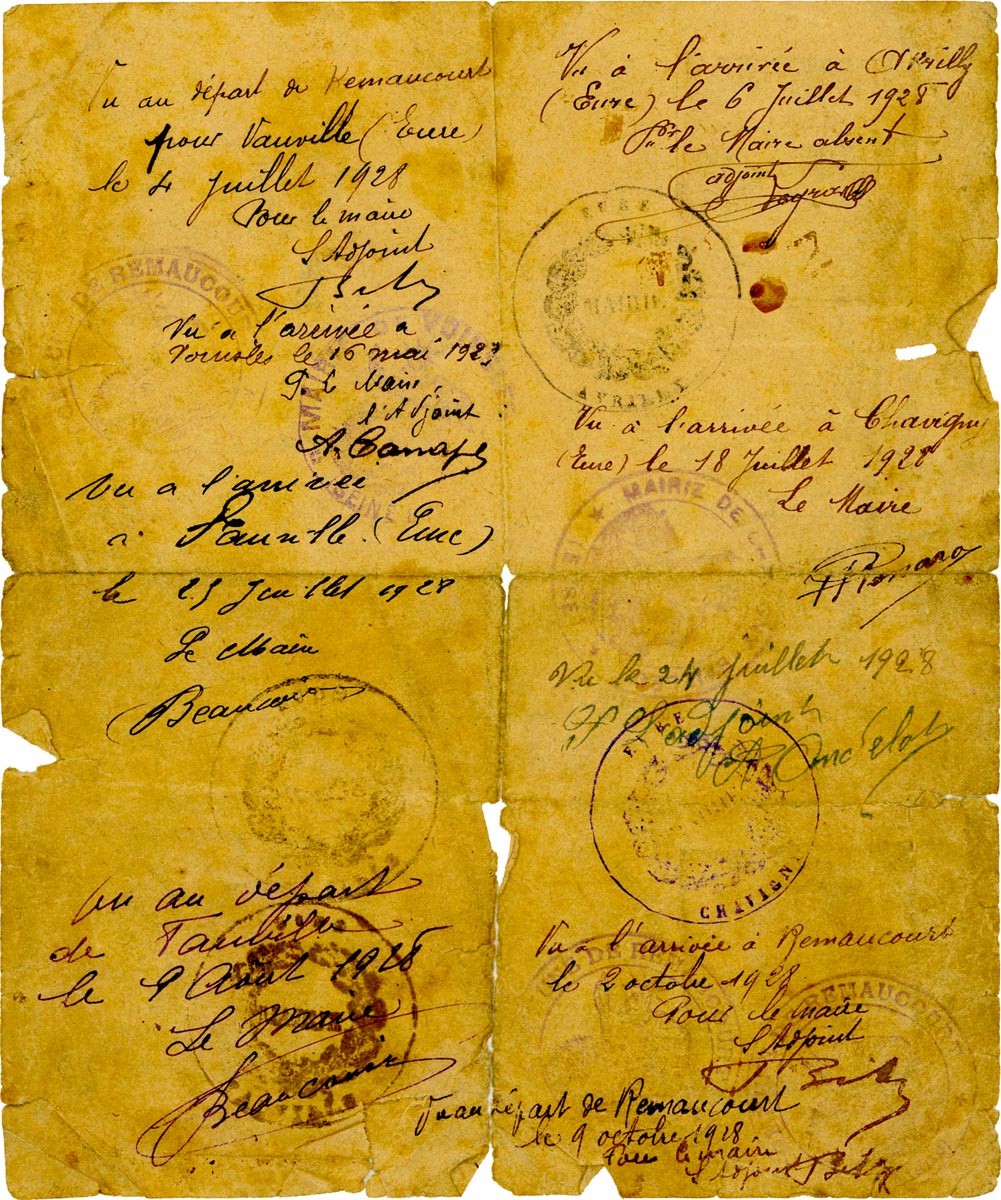 Vu au départ de Remaucourt
pour Vauville (Eure)
le 4 Juillet 1928
Pour le maire
L'Adjoint
DE REMAUCOU
Vu a l'arrivée a
le 16 mai 1923
P. Le Maire,
l'Adjoint
MAIRIE
SEINE
Vu a l'arrivée
a (Eure)
le 25 Juillet 1928
Le Maire
Beaucousin
Vu au départ
de
le 9 Août 1928
Le Maire
Beaucousin
Vu à l'arrivée à Avrilly
(Eure) le 6 Juillet 1928
Pr le Maire absent
adjoint
EURE
MAIRIE
AVRILLY
Vu à l'arrivée à Chavigny
(Eure) le 18 Juillet 1928
Le Maire
MAIRIE DE
Vu le 24 Juillet 1928
L'adjoint
EURE
MAIRIE
CHAVIGN
Vu a l'arrivée à Remaucourt
le 2 octobre 1928
Pour le maire
L'Adjoint
REMAUCOURT
Vu au départ de Remaucourt
le 9 octobre 1928
Pour le maire
L'Adjoint